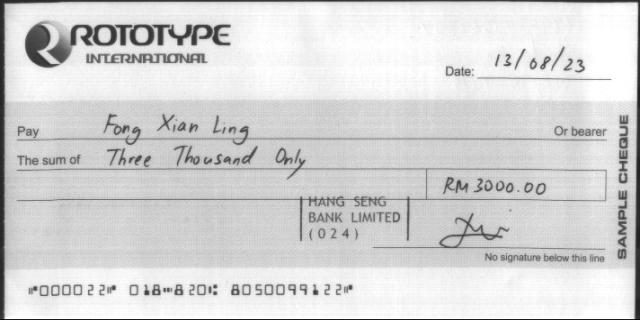 ROTOTYPE
INTERNATIONAL
Date: 13/08/23
Pay Fong Xian Ling Or bearer
The sum of Three Thousand Only
RM3000.00
HANG SENG
BANK LIMITED
(024)
No signature below this line
SAMPLE CHEQUE
⑈000022⑈ 018⑉820⑆ 8050099122⑈